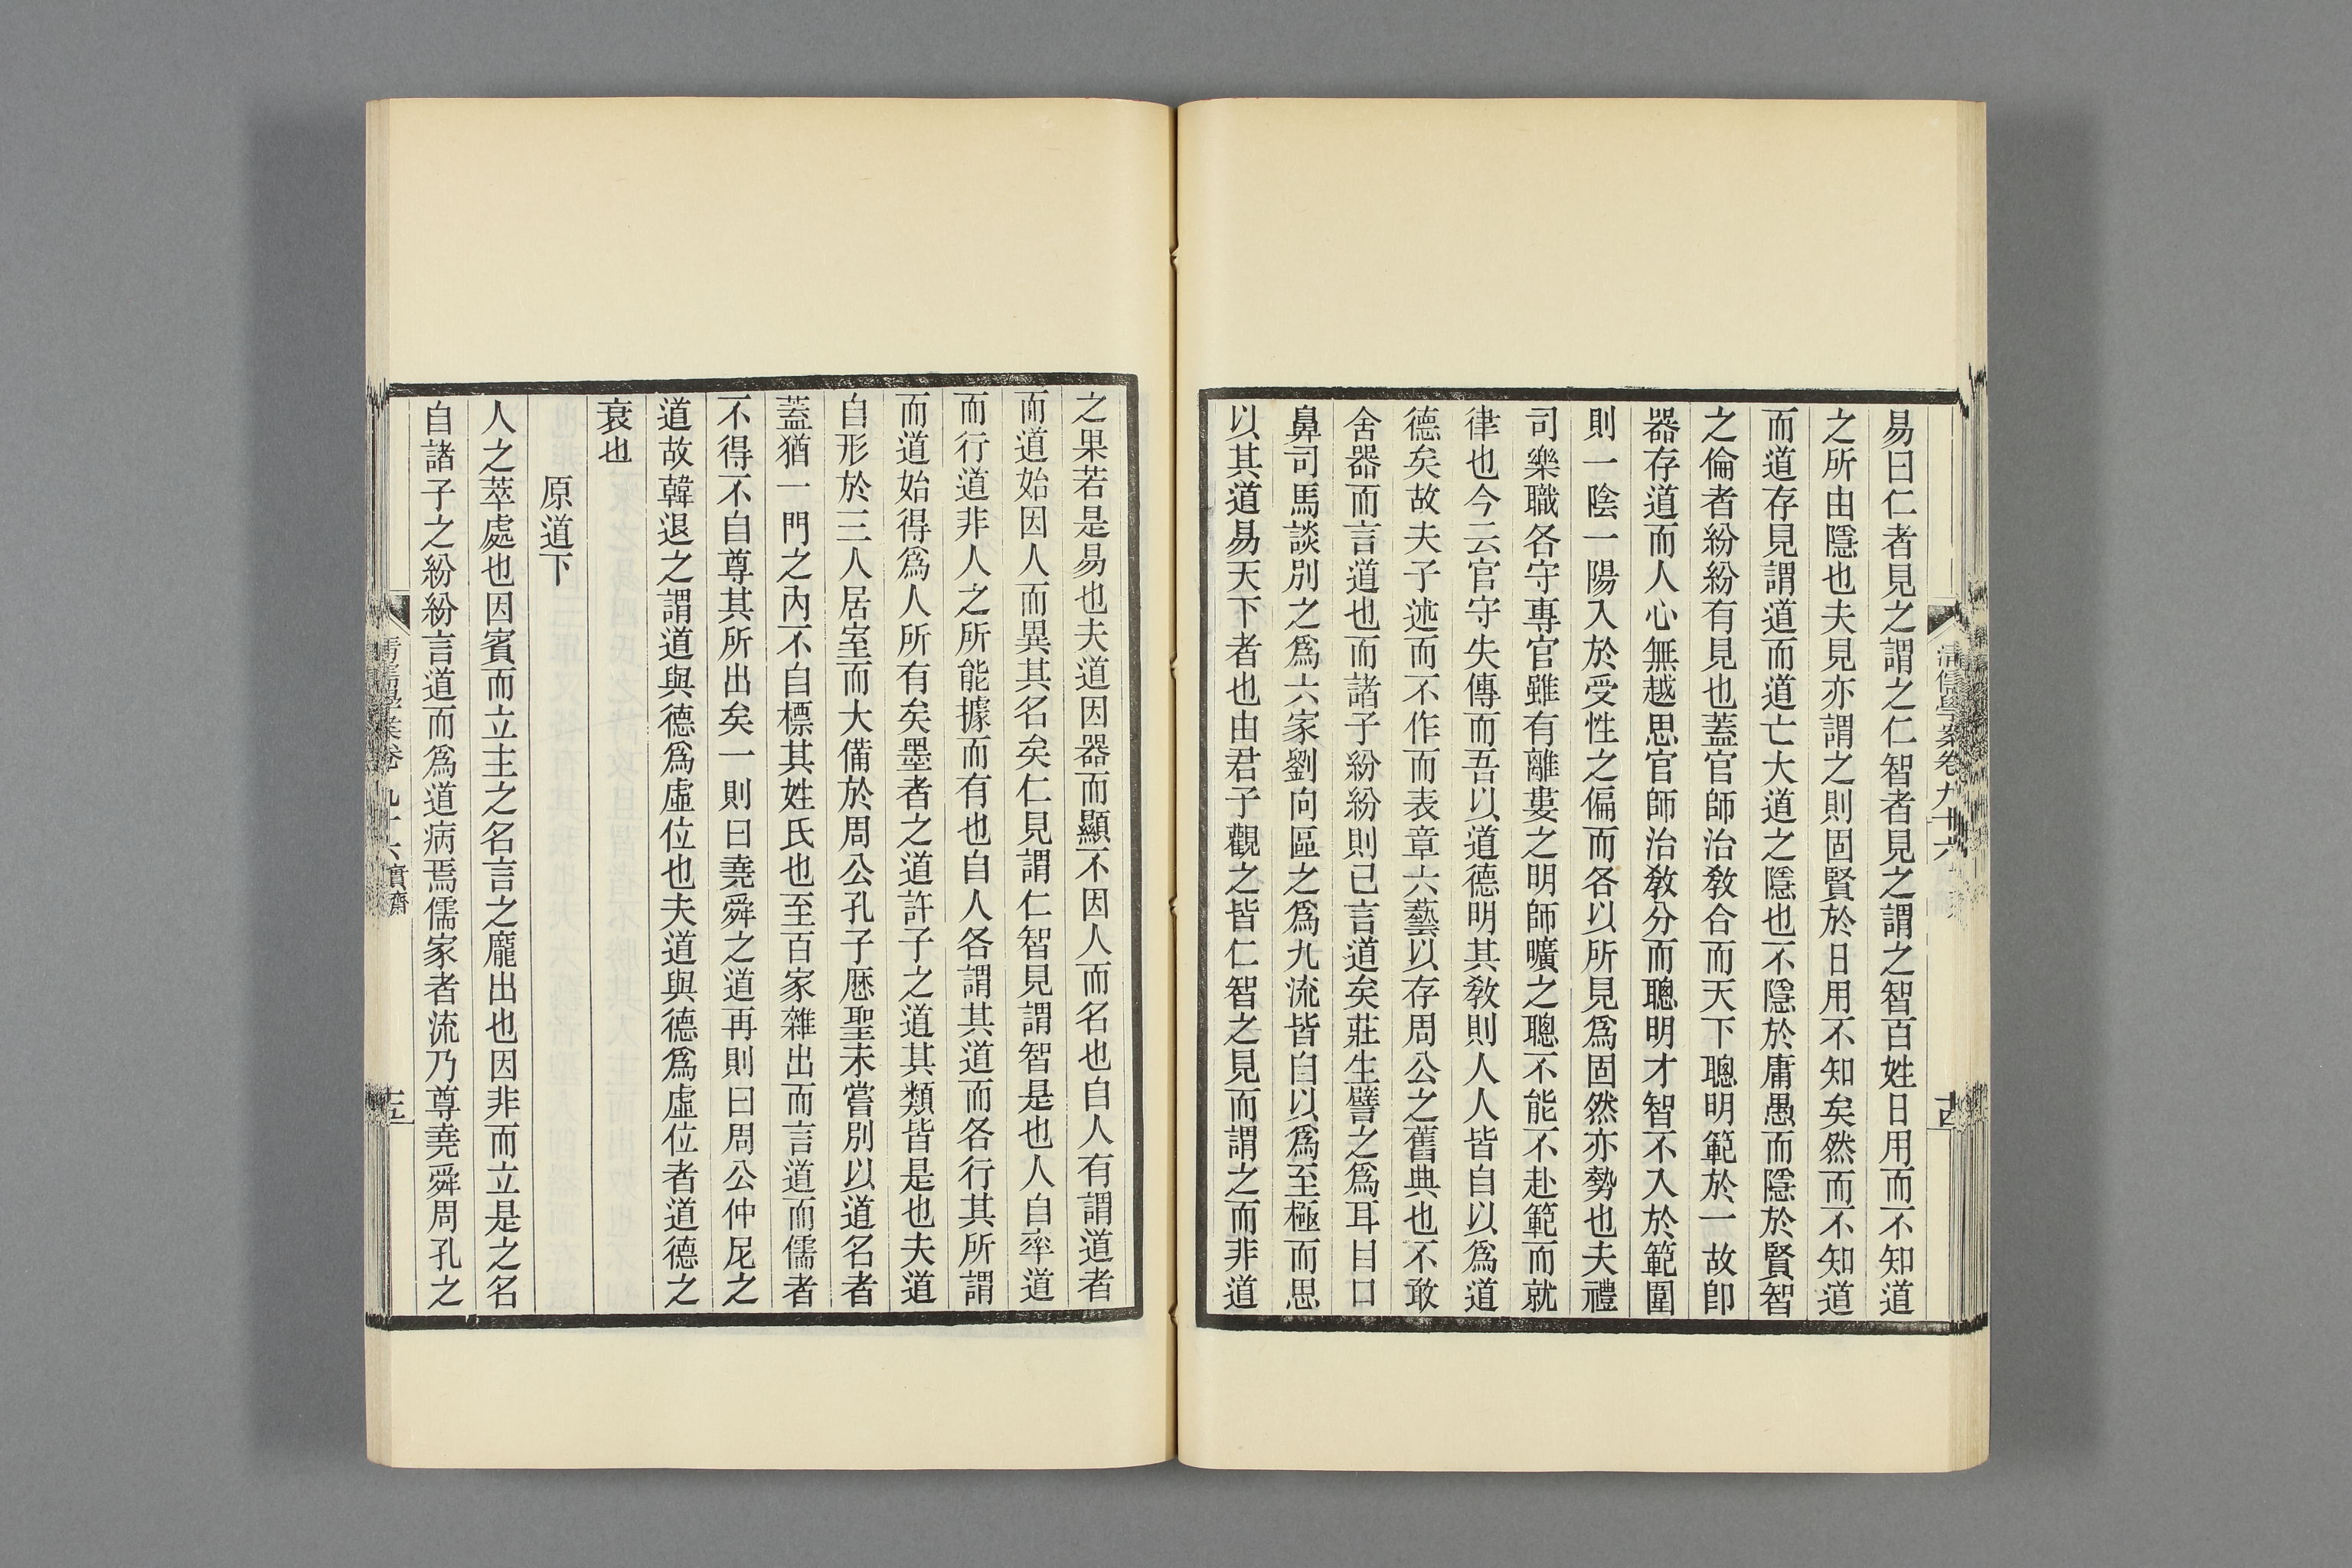 易曰仁者見之謂之仁智者見之謂之智百姓日用而不知道
之所由隱也夫見亦謂之則固賢於日用不知矣然而不知道
而道存見謂道而道亡大道之隱也不隱於庸愚而隱於賢智
之倫者紛紛有見也蓋官師治敎合而天下聰明範於一故卽
器存道而人心無越思官師治敎分而聰明才智不入於範圍
則一陰一陽入於受性之偏而各以所見爲固然亦勢也夫禮
司樂職各守專官雖有離婁之明師曠之聰不能不赴範而就
律也今云官守失傳而吾以道德明其敎則人人皆自以爲道
德矣故夫子述而不作而表章六藝以存周公之舊典也不敢
舍器而言道也而諸子紛紛則已言道矣莊生譬之爲耳目口
鼻司馬談別之爲六家劉向區之爲九流皆自以爲至極而思
以其道易天下者也由君子觀之皆仁智之見而謂之而非道
之果若是易也夫道因器而顯不因人而名也自人有謂道者
而道始因人而異其名矣仁見謂仁智見謂智是也人自率道
而行道非人之所能據而有也自人各謂其道而各行其所謂
而道始得爲人所有矣墨者之道許子之道其類皆是也夫道
自形於三人居室而大備於周公孔子歷聖未嘗別以道名者
蓋猶一門之內不自標其姓氏也至百家雜出而言道而儒者
不得不自尊其所出矣一則曰堯舜之道再則曰周公仲尼之
道故韓退之謂道與德爲虛位也夫道與德爲虛位者道德之
衰也
原道下
人之萃處也因賓而立主之名言之龐出也因非而立是之名
自諸子之紛紛言道而爲道病焉儒家者流乃尊堯舜周孔之
清儒學案卷九十六
清儒學案卷九十六 實齋